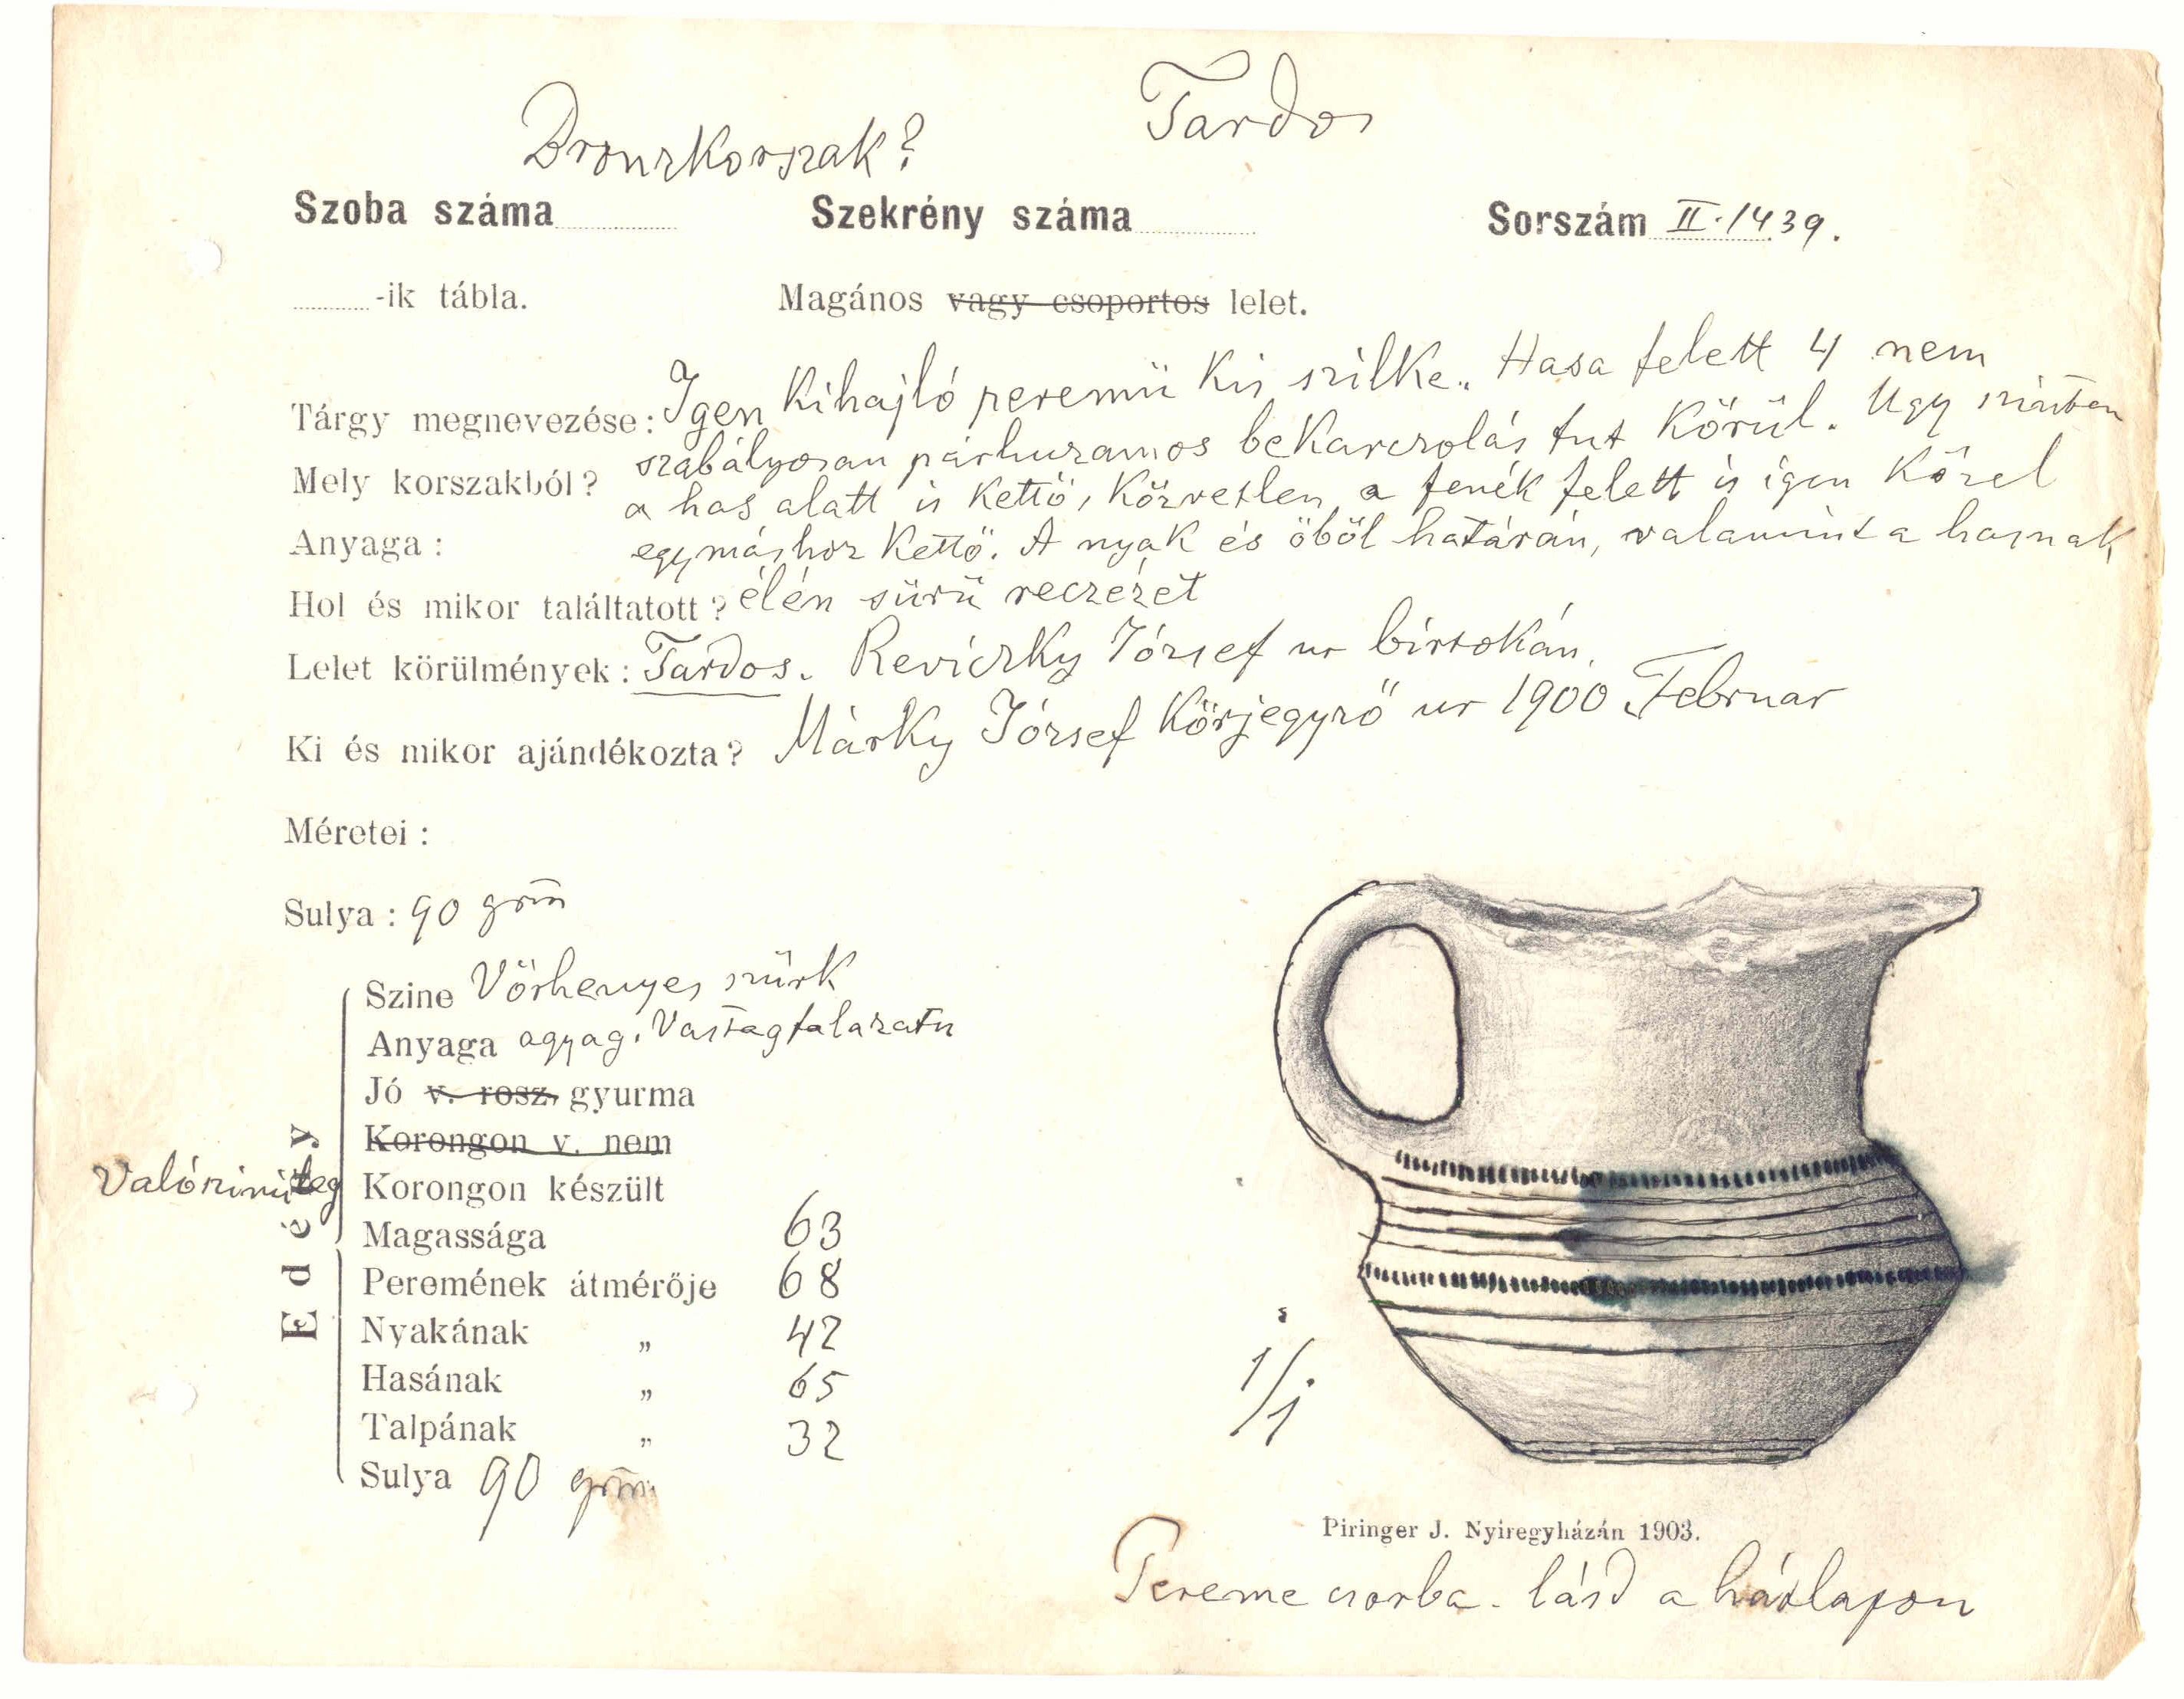 Tardos
Bronzkorszak?
Szoba száma Szekrény száma Sorszám II. 1439.
-ik tábla. Magános vagy csoportos lelet.
Tárgy megnevezése: Igen Kihajló peremü Kis szilke. Hasa felett 4 nem
Mely korszakból? szabályosan párhuzamos beKarczolás fut Körül. Ugy szintén
a has alatt is Kettö, Közvetlen a fenék felett is igen Közel
Anyaga: egymáshoz Kettö. A nyak és öböl határán, valamint a hasnak
Hol és mikor találtatott? élén sürü reczézet
Lelet körülmények: Tardos. Reviczky József ur birtokán.
Ki és mikor ajándékozta? Márky József Körjegyző ur 1900 Februar
Méretei:
Sulya: 90 grm
Edény
Szine Vörhenyes szürk
Anyaga agyag. Vastagfalazatu
Jó v. rosz. gyurma
Korongon v. nem
Valószinüleg Korongon készült
Magassága 63
Peremének átmérője 68
Nyakának „ 42
Hasának „ 65
Talpának „ 32
Sulya 90 grm.
1/1
Piringer J. Nyiregyházán 1903.
Pereme csorba. lásd a hátlapon